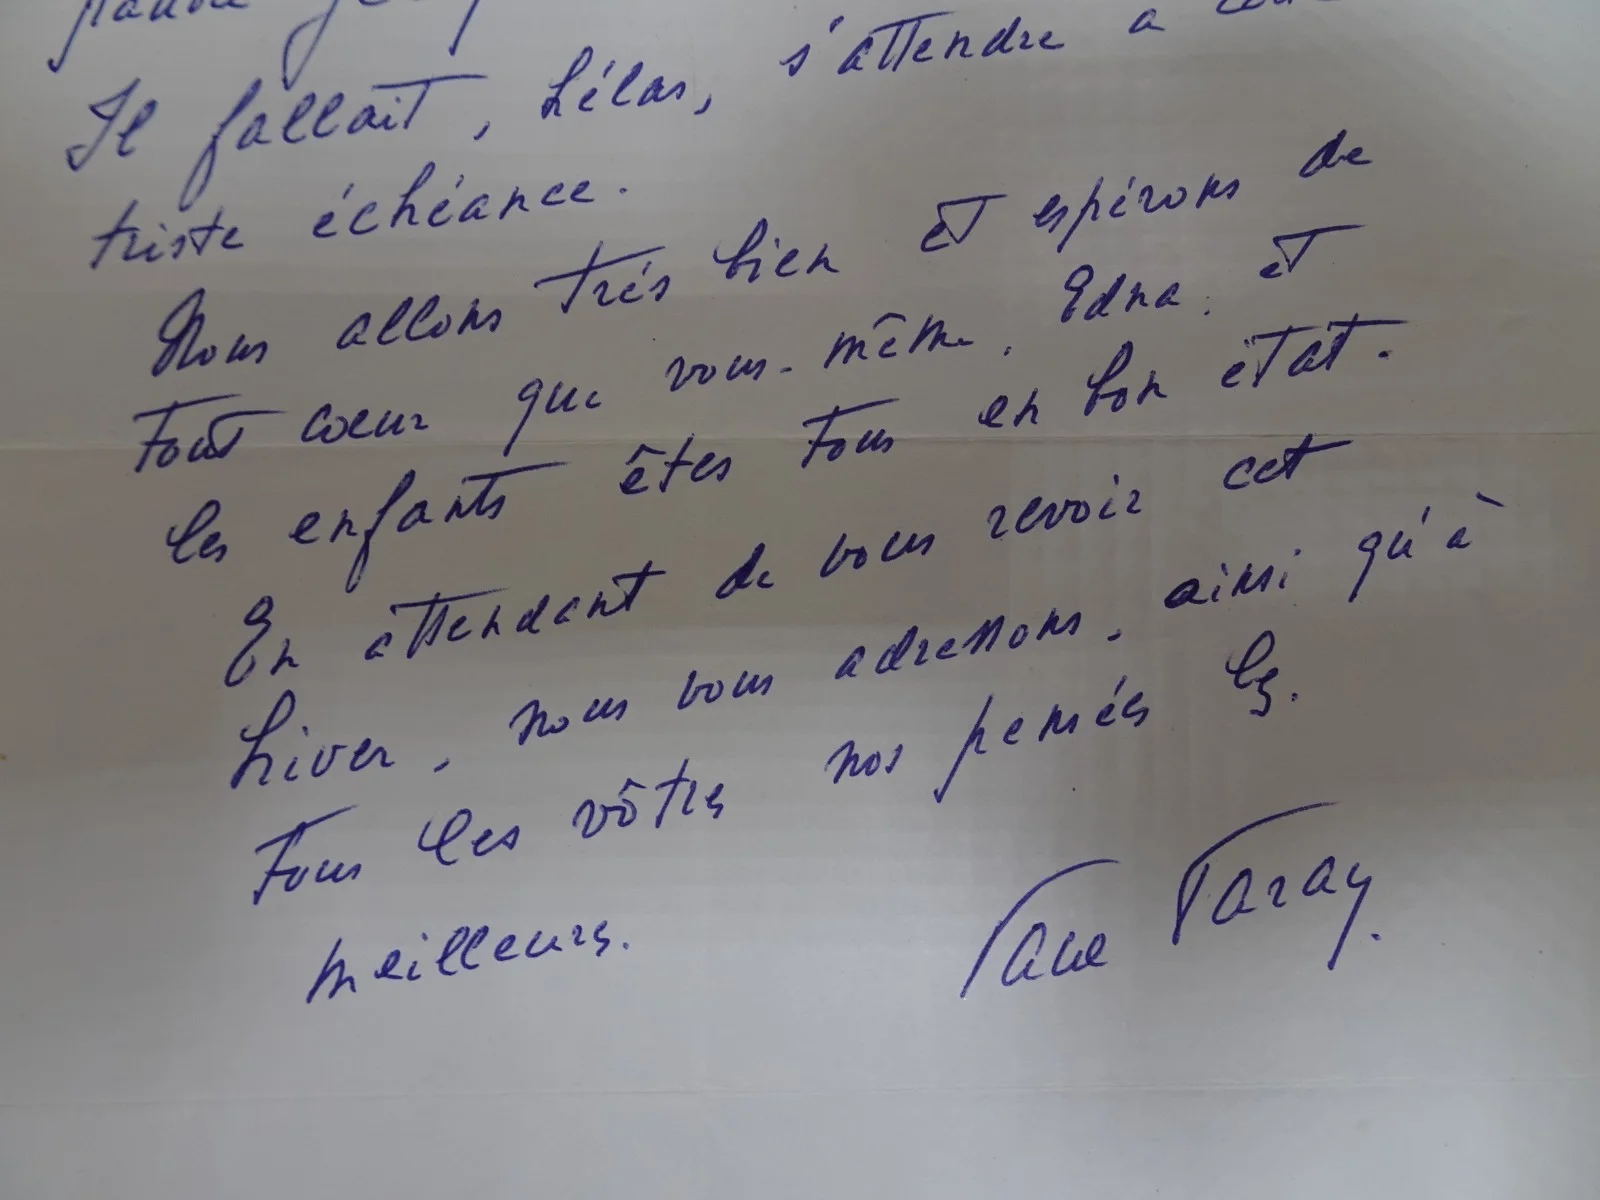 Il fallait, hélas, s'attendre à
triste échéance.
Nous allons très bien et espérons de
tout coeur que vous-même, Edna, et
les enfants êtes tous en bon état.
En attendant de vous revoir cet
hiver, nous vous adressons, ainsi qu'à
tous les vôtres nos pensées les
meilleures.